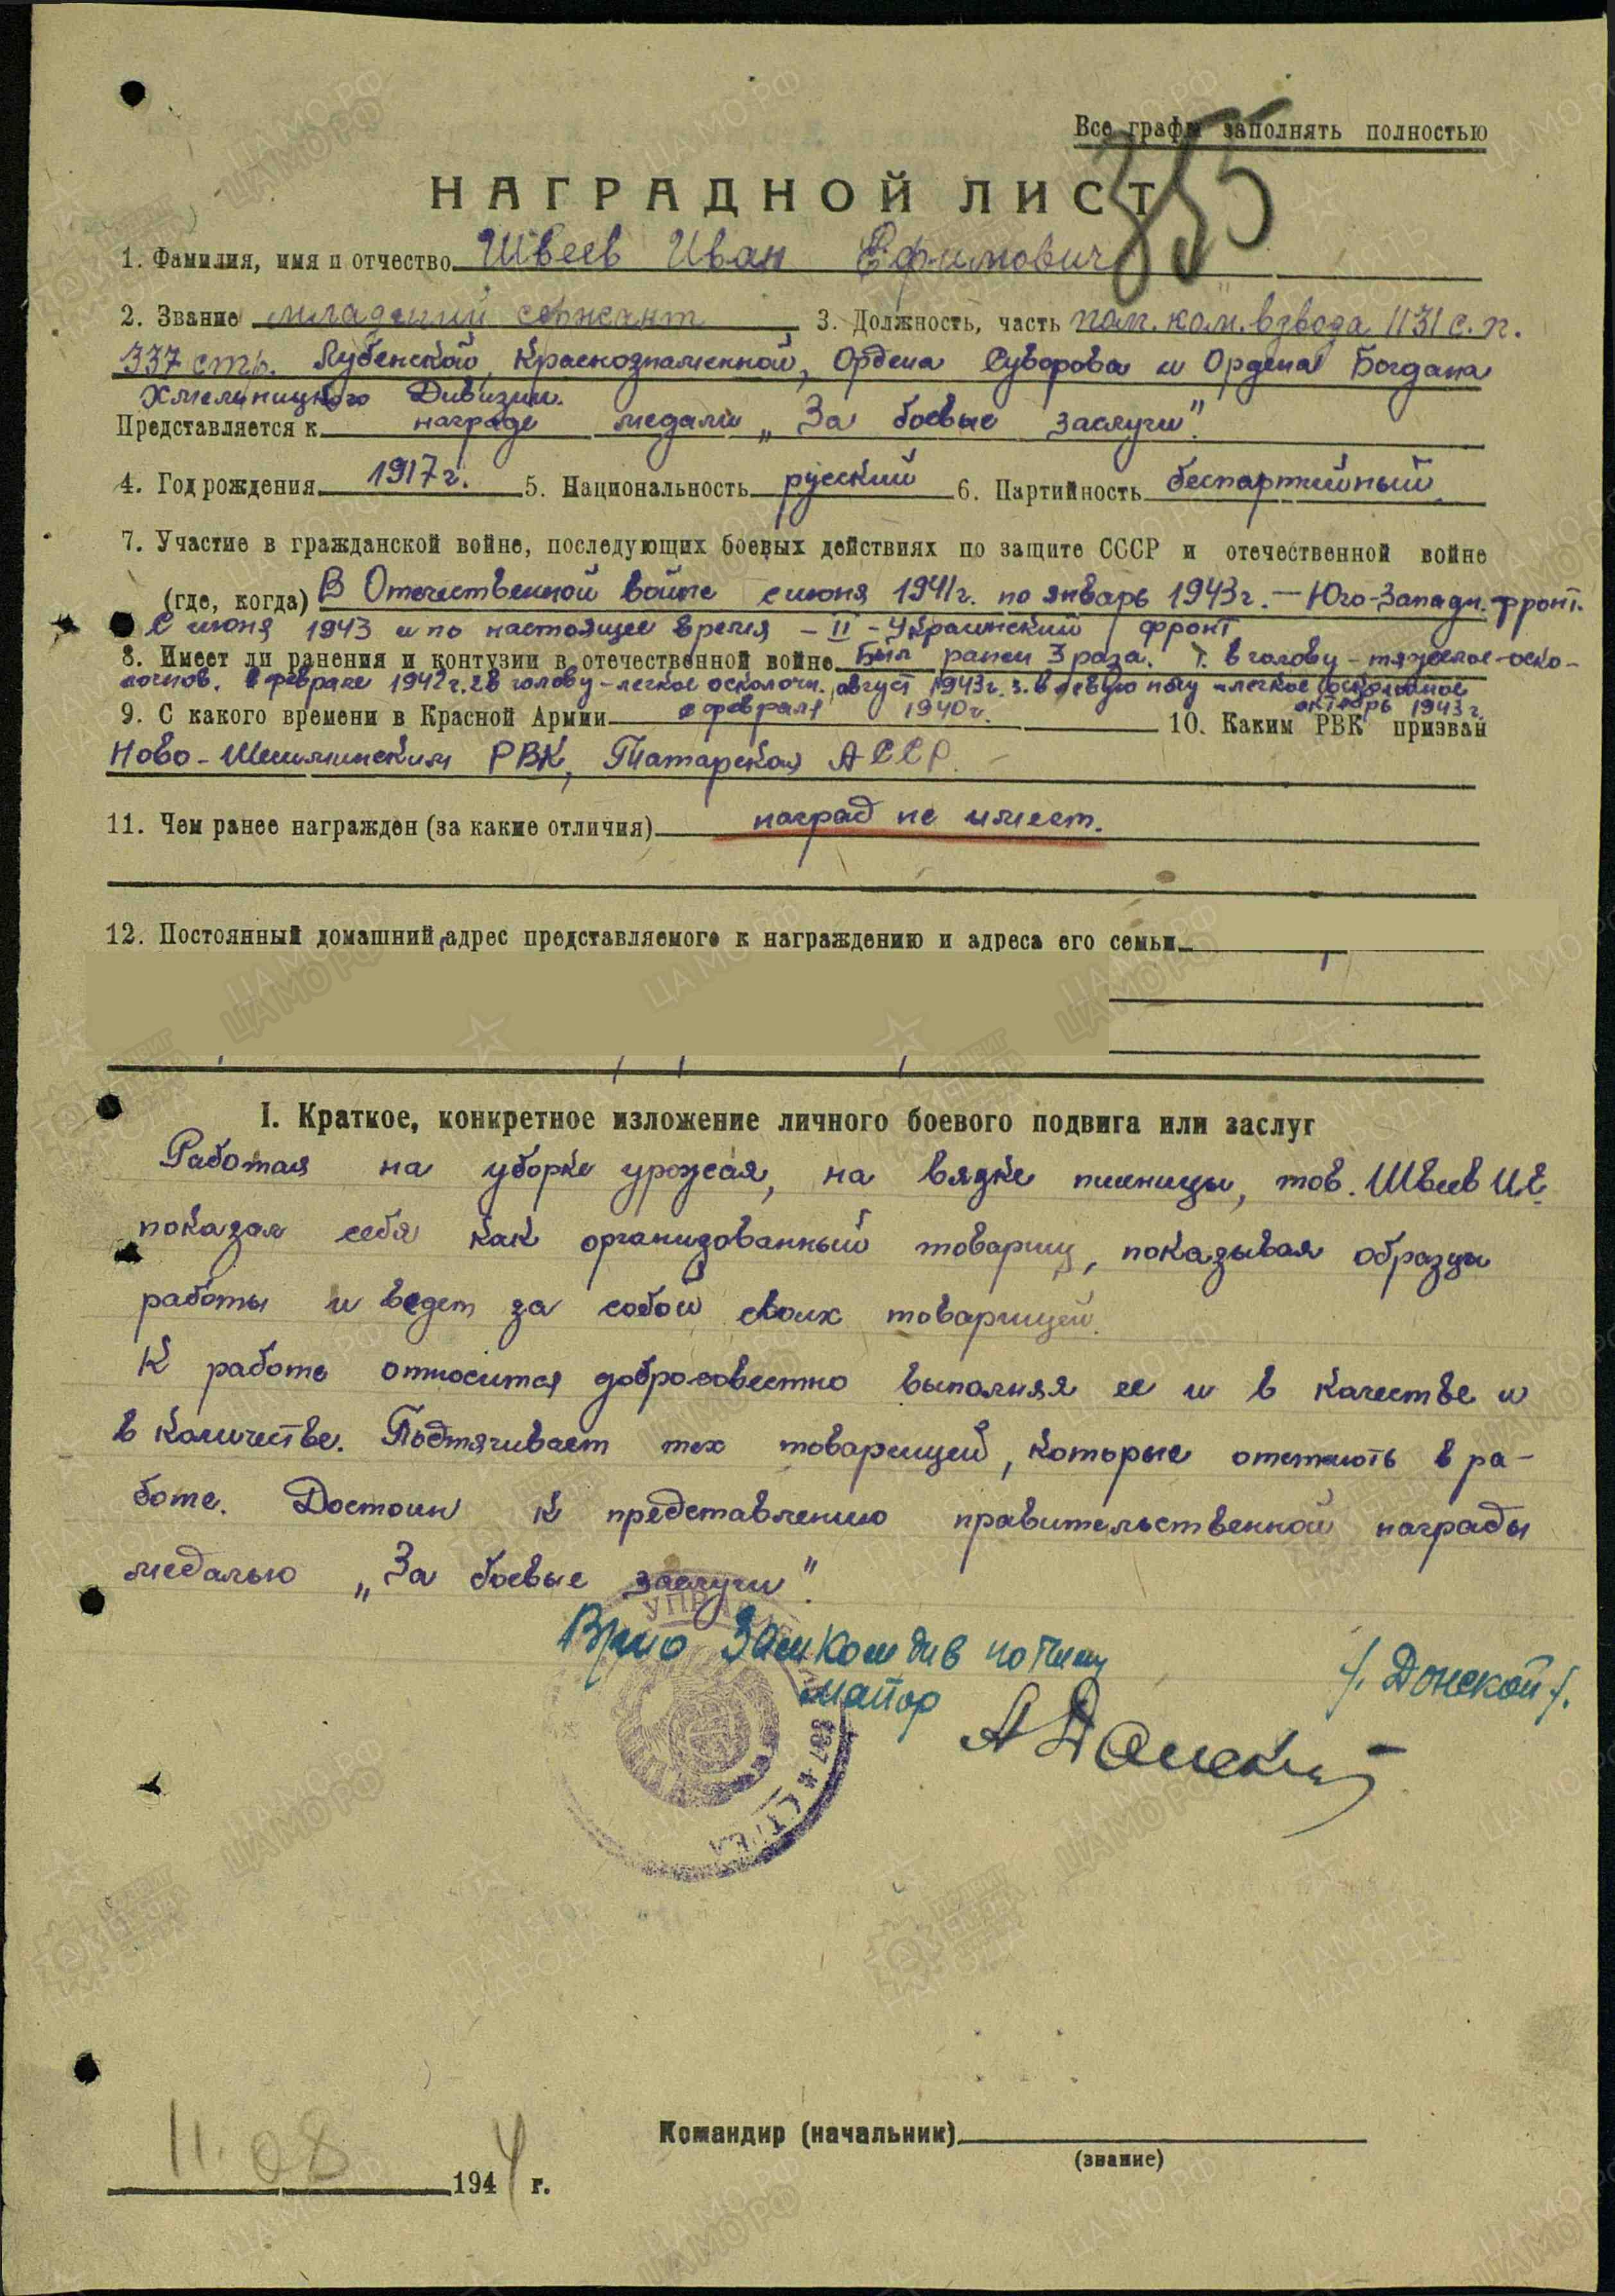 Все графы заполнять полностью
355
НАГРАДНОЙ ЛИСТ
1. Фамилия, имя и отчество Швеев Иван Ефимович
2. Звание младший сержант 3. Должность, часть пом. ком. взвода 1131 с. п.
337 стр. Лубенской, Краснознаменной, Ордена Суворова и Ордена Богдана
Хмельницкого Дивизии.
Представляется к награде медали „За боевые заслуги".
4. Год рождения 1917 г. 5. Национальность русский 6. Партийность беспартийный.
7. Участие в гражданской войне, последующих боевых действиях по защите СССР и отечественной войне
(где, когда) В Отечественной войне с июня 1941 г. по январь 1943 г. — Юго-Западн. фронт.
С июня 1943 и по настоящее время – II – Украинский фронт
8. Имеет ли ранения и контузии в отечественной войне Был ранен 3 раза. 1. в голову – тяжелое – оско-
лочнов. в феврале 1942 г. 2. в голову – легкое осколочн., август 1943 г. 3. в левую ногу – легкое осколочное
октябрь 1943 г.
9. С какого времени в Красной Армии с февраля 1940 г. 10. Каким РВК призван
Ново-Шешминским РВК, Татарская АССР.
11. Чем ранее награжден (за какие отличия) наград не имеет.
12. Постоянный домашний адрес представляемого к награждению и адреса его семьи
I. Краткое, конкретное изложение личного боевого подвига или заслуг
Работая на уборке урожая, на вязке пшеницы, тов. Швеев И.Е.
показал себя как организованный товарищ, показывая образцы
работы и ведет за собой своих товарищей.
К работе относится добросовестно выполняя ее и в качестве и
в количестве. Подтягивает тех товарищей, которые отстают в ра-
боте. Достоин к представлению правительственной награды
медалью „За боевые заслуги".
Врио Замкомдив по тылу
майор /. Донской /.
А Донской
УПРАВ
337-я СТРЕЛ
Командир (начальник)
(звание)
11. 08 1944 г.
ЦАМО РФ
ПАМЯТЬ НАРОДА